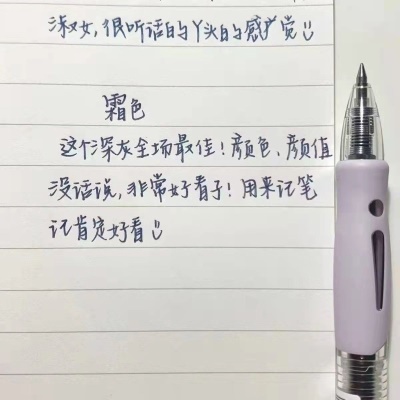 淑女，很听话的丫头的感觉
霜色
这个深灰全场最佳！颜色、颜值
没话说，非常好看子！用来记笔
记肯定好看